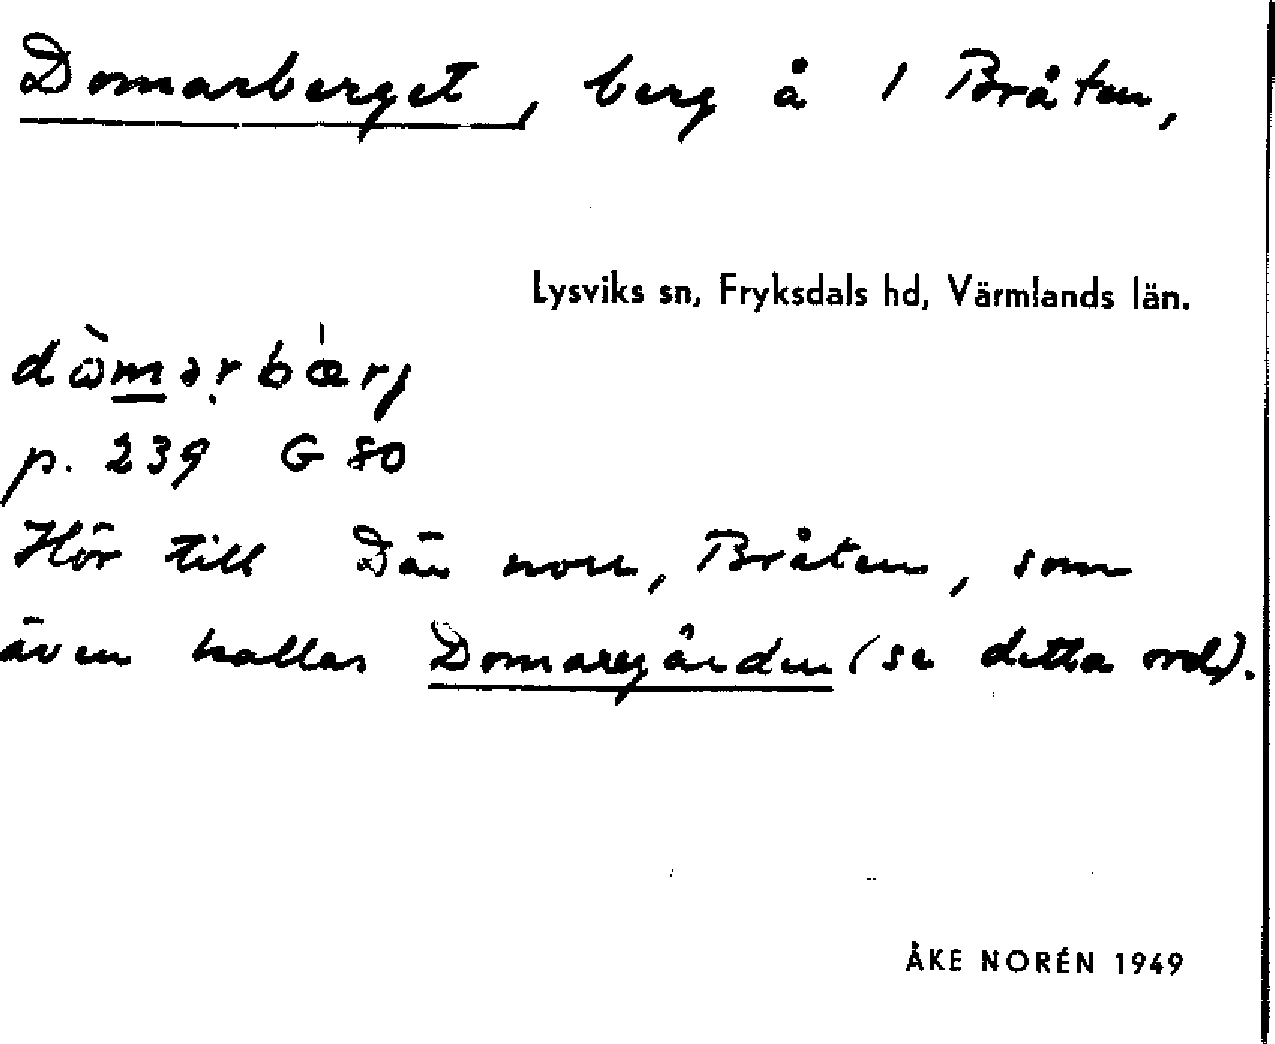 Domarberget, berg å 1 Bråten,
Lysviks sn, Fryksdals hd, Värmlands län.
dὼmərbǽrj
p. 239 G 80
Hör till Där norr, Bråten, som
även kallas Domaregården (se detta ord).
ÅKE NORÉN 1949